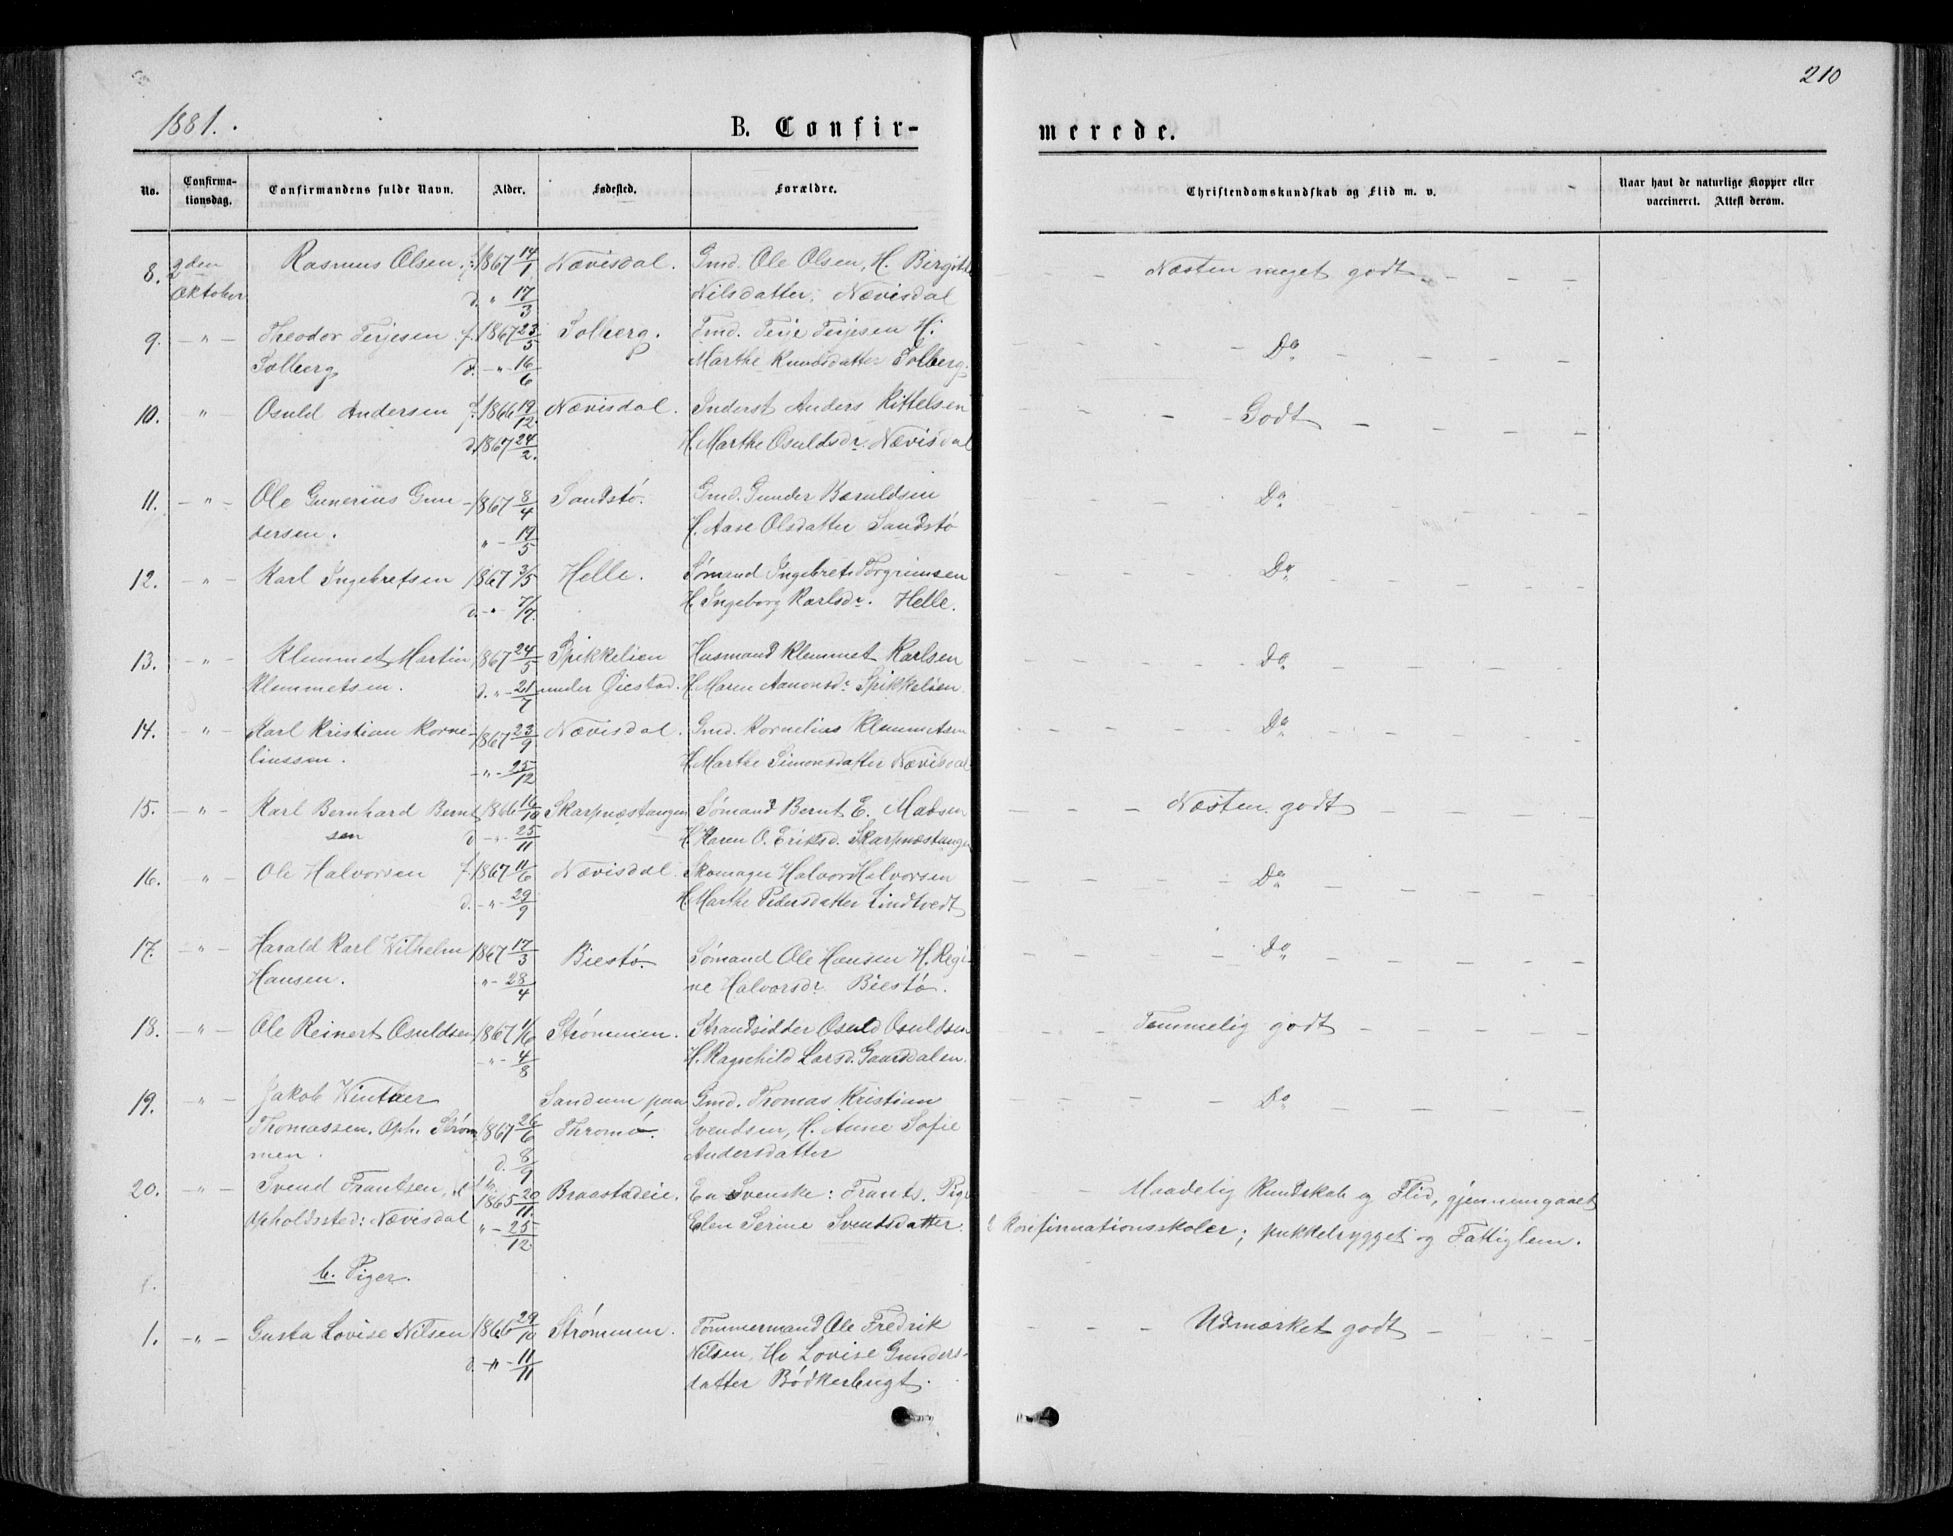 210
1881.
B. Confir-
merede.
No.
Confirma-
tionsdag.
Confirmandens fulde Navn.
Alder.
Fødested.
Forældre.
Christendomskundskab og Flid m. v.
Naar havt de naturlige Kopper eller
vaccineret. Attest derom.
8. 2den Rasmus Olsen f. 1867 14/1 Nævisdal. Gmd. Ole Olsen, H. Birgitte - - Næsten meget godt - - -
Oktober d. " 17/3 Nilsdatter, Nævisdal
9. - " - Theodor Terjesen f. 1867 23/5 Solberg. Gmd. Terje Terjesen H. - - - Do - - - -
Solberg d. - " - 16/6 Marthe Knudsdatter Solberg.
10. " - Osuld Andersen f. 1866 19/12 Nævisdal. Inderst Anders Kittelsen - - - Godt - - - -
d. 1867 24/2. H. Marthe Osuldsdr. Nævisdal
11. - " - Ole Gunerius Gun- 1867 8/4 Sandstø. Gmd. Gunder Baruldsen - - Do - - - -
dersen. " - 19/5 H. Aase Olsdatter Sandstø
12. - " - Karl Ingebretsen 1867 3/5 Helle. Sømand Ingebret Torgrimsen - - - Do - - - -
d. - " - 7/7. H. Ingeborg Karlsdr. Helle.
13. - " - Klemmet Martin 1867 24/5 Spikkelien Husmand Klemmet Karlsen - - - - Do - - - -
Klemmetsen. d. " - 21/7 under Øiestad. H. Maren Aanonsdr. Spikkelien.
14. - " - Karl Kristian Korne- 1867 23/9 Nævisdal. Gmd. Kornelius Klemmetsen - - - - Do - - - -
liussen. - " - 25/12 H. Marthe Simonsdatter Nævisdal
15. - " - Karl Bernhard Bernt- 1866 16/10 Skarpnæstangen Sømand Bernt E. Madsen - - - Næsten godt - - - -
sen d. - " - 25/11 H. Karen O. Eriksd. Skarpnæstangen
16. - " - Ole Halvorsen f. 1867 11/6 Nævisdal. Skomager Halvor Halvorsen - - - - Do - - - -
d. - " - 29/9 H. Marthe Pedersdatter Lindtvedt
17. - " - Harald Karl Wilhelm 1867 17/3 Biestø. Sømand Ole Hansen H. Regi- - - - - Do - - - -
Hansen. " - 28/4 ne Halvorsdr. Biestø.
18. - " - Ole Reinert Osuldsen 1867 1/6 Strømmen. Strandsidder Osuld Osuldsen - - - Temmelig godt - - - -
" - 4/8 H. Ragnhild Larsd. Gaarddalen.
19. - " - Jakob Winther Sandum paa Gmd. Thomas Kristian - - - - Do - - - -
Thomassen. Oph. Strøm- 1867 26/6 Thromø. Svendsen, H. Anne Sofie
men. d. 8/9 Andersdatter
20. - " - Svend Frantsen, 1865 20/11. Braastadeie. En Svenske: Frants. Pige - - Maadelig Kundskab og Flid, gjennemgaaet
Opholdssted: Nævisdal " - 25/12 Elen Serine Svendsdatter. 2 Konfirmationsskoler; pukkelrygget og Fattiglem.
b. Piger.
1. - " - Gusta Lovise Nilsen 1866 29/10 Strømmen. Tømmermand Ole Fredrik - - - Udmærket godt - - -
d. - " - 11/11 Nilsen, H. Lovise Gunders-
datter Bødkerbugt.